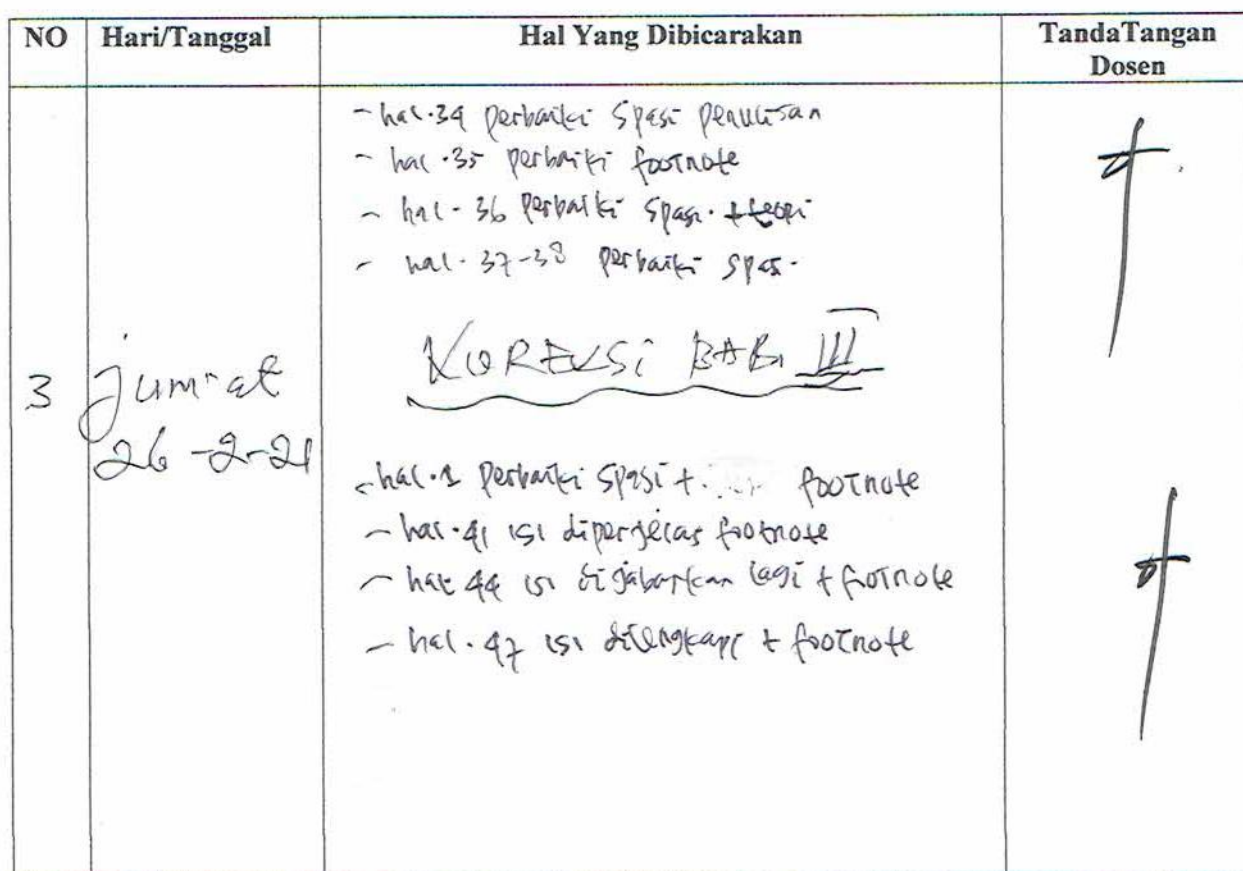 NO Hari/Tanggal Hal Yang Dibicarakan TandaTangan
Dosen
- hal.34 perbaiki spasi penulisan
- hal.35 perbaiki footnote
- hal.36 perbaiki spasi. + teori
- hal.37-38 perbaiki spasi.
KOREKSI BAB III
3 Jum'at
26-2-21
- hal.1 perbaiki spasi + footnote
- hal.41 isi diperjelas footnote
- hal 44 isi dijabarkan lagi + footnote
- hal.47 isi dilengkapi + footnote